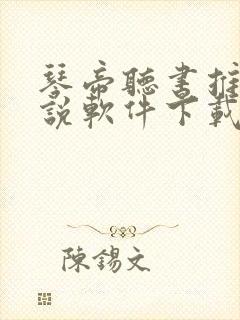 琴帝聽書推
說軟件下載
陳錫文